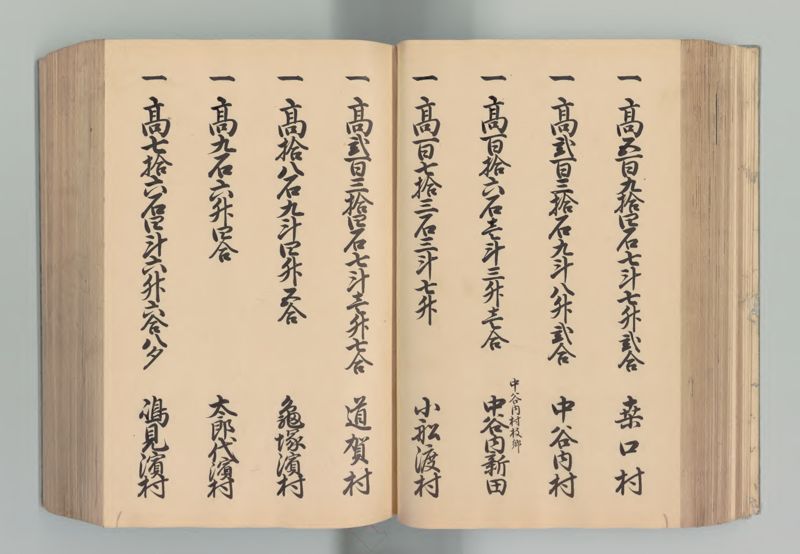 一 高五百九拾四石七斗七升弐合 桒口村
一 高弐百三拾石九斗八升弐合 中谷内村
一 高百拾六石壱斗三升壱合 中谷内村枝郷 中谷内新田
一 高百七拾三石三斗七升 小舩渡村
一 高弐百三拾四石七斗壱升七合 道賀村
一 高拾八石九斗四升五合 亀塚濱村
一 高九石六升四合 太郎代濱村
一 高七拾六石四斗六升六合八夕 嶋見濱村